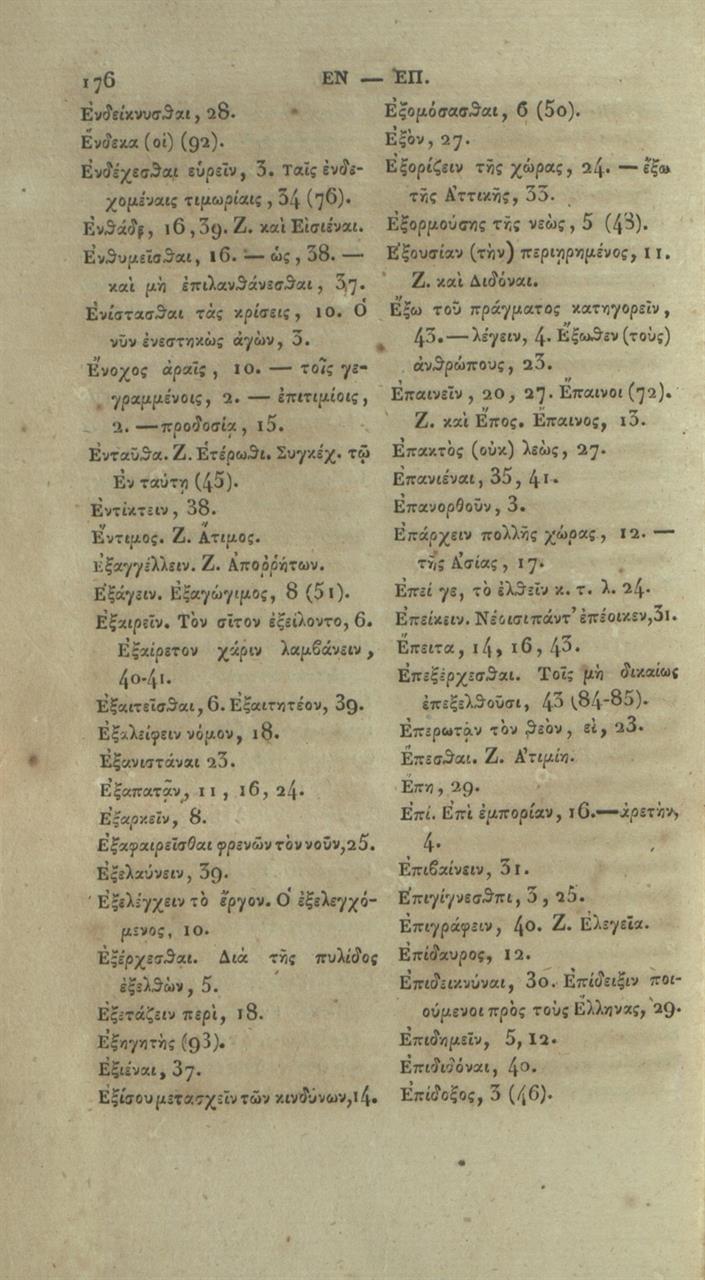 176
ΕΝ — ΕΠ.
Ἐνδείκνυσθαι, 28.
Ἕνδεκα (οἱ) (92).
Ἐνδέχεσθαι εὑρεῖν, 3. Ταῖς ἐνδε-
χομέναις τιμωρίαις, 34 (76).
Ἐνθάδε, 16, 39. Ζ. καὶ Εἰσιέναι.
Ἐνθυμεῖσθαι, 16. — ὡς, 38. —
καὶ μὴ ἐπιλανθάνεσθαι, 37.
Ἐνίστασθαι τὰς κρίσεις, 10. Ὁ
νῦν ἐνεστηκὼς ἀγὼν, 3.
Ἔνοχος ἀραῖς, 10. — τοῖς γε-
γραμμένοις, 2. — ἐπιτιμίοις,
2. — προδοσίᾳ, 15.
Ἐνταῦθα. Ζ. Ἑτέρωθι. Συγκέχ. τῷ
Ἐν ταύτῃ (45).
Ἐντίκτειν, 38.
Ἔντιμος. Ζ. Ἄτιμος.
Ἐξαγγέλλειν. Ζ. Ἀποῤῥήτων.
Ἐξάγειν. Ἐξαγώγιμος, 8 (51).
Ἐξαιρεῖν. Τὸν σῖτον ἐξείλοντο, 6.
Ἐξαίρετον χάριν λαμβάνειν,
40-41.
Ἐξαιτεῖσθαι, 6. Ἐξαιτητέον, 39.
Ἐξαλείφειν νόμον, 18.
Ἐξανιστάναι 23.
Ἐξαπατᾷν, 11, 16, 24.
Ἐξαρκεῖν, 8.
Ἐξαφαιρεῖσθαι φρενῶν τὸν νοῦν, 25.
Ἐξελαύνειν, 39.
Ἐξελέγχειν τὸ ἔργον. Ὁ ἐξελεγχό-
μενος, 10.
Ἐξέρχεσθαι. Διὰ τῆς πυλίδος
ἐξελθὼν, 5.
Ἐξετάζειν περὶ, 18.
Ἐξηγητὴς (93).
Ἐξιέναι, 37.
Ἐξίσου μετασχεῖν τῶν κινδύνων, 14.
Ἐξομόσασθαι, 6 (50).
Ἐξὸν, 27.
Ἐξορίζειν τῆς χώρας, 24. — ἔξω
τῆς Ἀττικῆς, 33.
Ἐξορμούσης τῆς νεὼς, 5 (48).
Ἐξουσίαν (τὴν) περιῃρημένος, 11.
Ζ. καὶ Διδόναι.
Ἔξω τοῦ πράγματος κατηγορεῖν,
43. — λέγειν, 4. Ἔξωθεν (τοὺς)
ἀνθρώπους, 23.
Ἐπαινεῖν, 20, 27. Ἔπαινοι (72).
Ζ. καὶ Ἔπος. Ἔπαινος, 13.
Ἐπακτὸς (οὐκ) λεὼς, 27.
Ἐπανιέναι, 35, 41.
Ἐπανορθοῦν, 3.
Ἐπάρχειν πολλῆς χώρας, 12. —
τῆς Ἀσίας, 17.
Ἐπεί γε, τὸ ἐλθεῖν κ. τ. λ. 24.
Ἐπείκειν. Νέοισι πάντ' ἐπέοικεν, 31.
Ἔπειτα, 14, 16, 43.
Ἐπεξέρχεσθαι. Τοῖς μὴ δικαίως
ἐπεξελθοῦσι, 43 (84-85).
Ἐπερωτᾷν τὸν θεὸν, εἰ, 23.
Ἕπεσθαι. Ζ. Ἀτιμίη.
Ἔπη, 29.
Ἐπί. Ἐπὶ ἐμπορίαν, 16. — ἀρετὴν,
4.
Ἐπιβαίνειν, 31.
Ἐπιγίγνεσθπι, 3, 25.
Ἐπιγράφειν, 40. Ζ. Ἐλεγεῖα.
Ἐπίδαυρος, 12.
Ἐπιδεικνύναι, 30. Ἐπίδειξιν ποι-
ούμενοι πρὸς τοὺς Ἕλληνας, 29.
Ἐπιδημεῖν, 5, 12.
Ἐπιδιδόναι, 40.
Ἐπίδοξος, 3 (46).